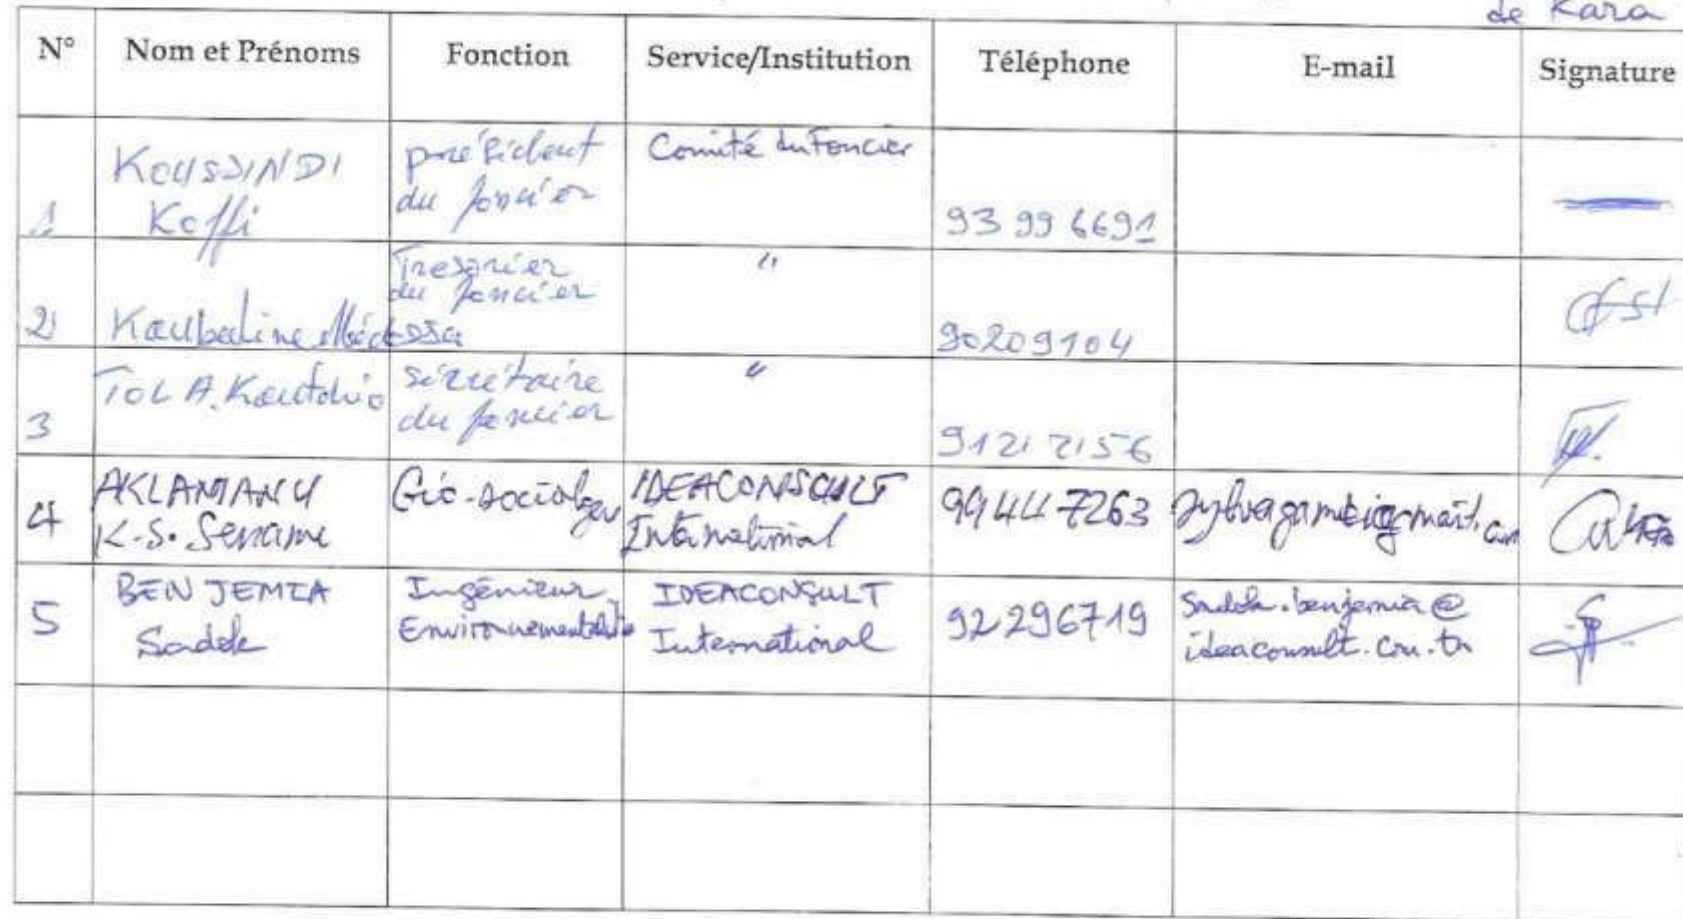 de Kara
N° Nom et Prénoms Fonction Service/Institution Téléphone E-mail Signature
1 KOUSSINDI Koffi président du foncier Comité du Foncier 93 99 6691
2 Kaubaline Tresorier du foncier " 90209104
3 TOL A. sécrétaire du foncier " 9121 2156
4 AKLAMANU K.S. Senamé Géo-sociologue IDEACONSULT International 99447263
5 BEN JEMIA Sadok Ingénieur Environnementaliste IDEACONSULT International 92296719 Sadok.benjemia@ideaconsult.com.tn